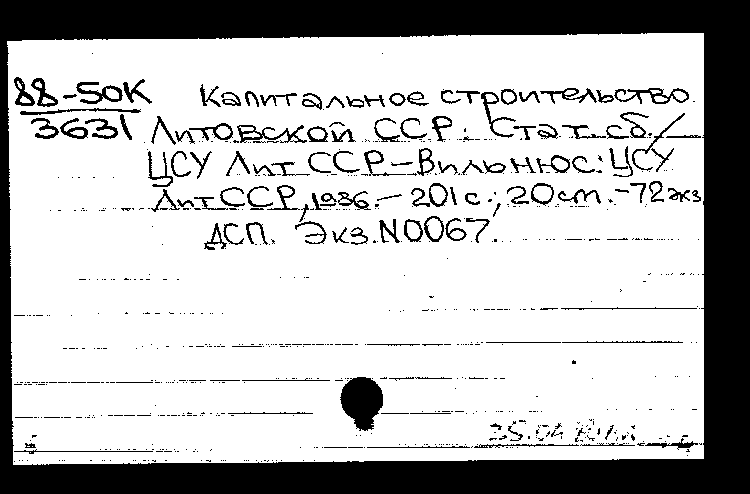 88-50К Капитальное строительство
3631 Литовской ССР: Стат. сб./
ЦСУ Лит ССР.-Вильнюс: ЦСУ
Лит ССР, 1986.- 201 с.; 20 см. -72 экз.
ДСП. Экз. N0067.
25.04